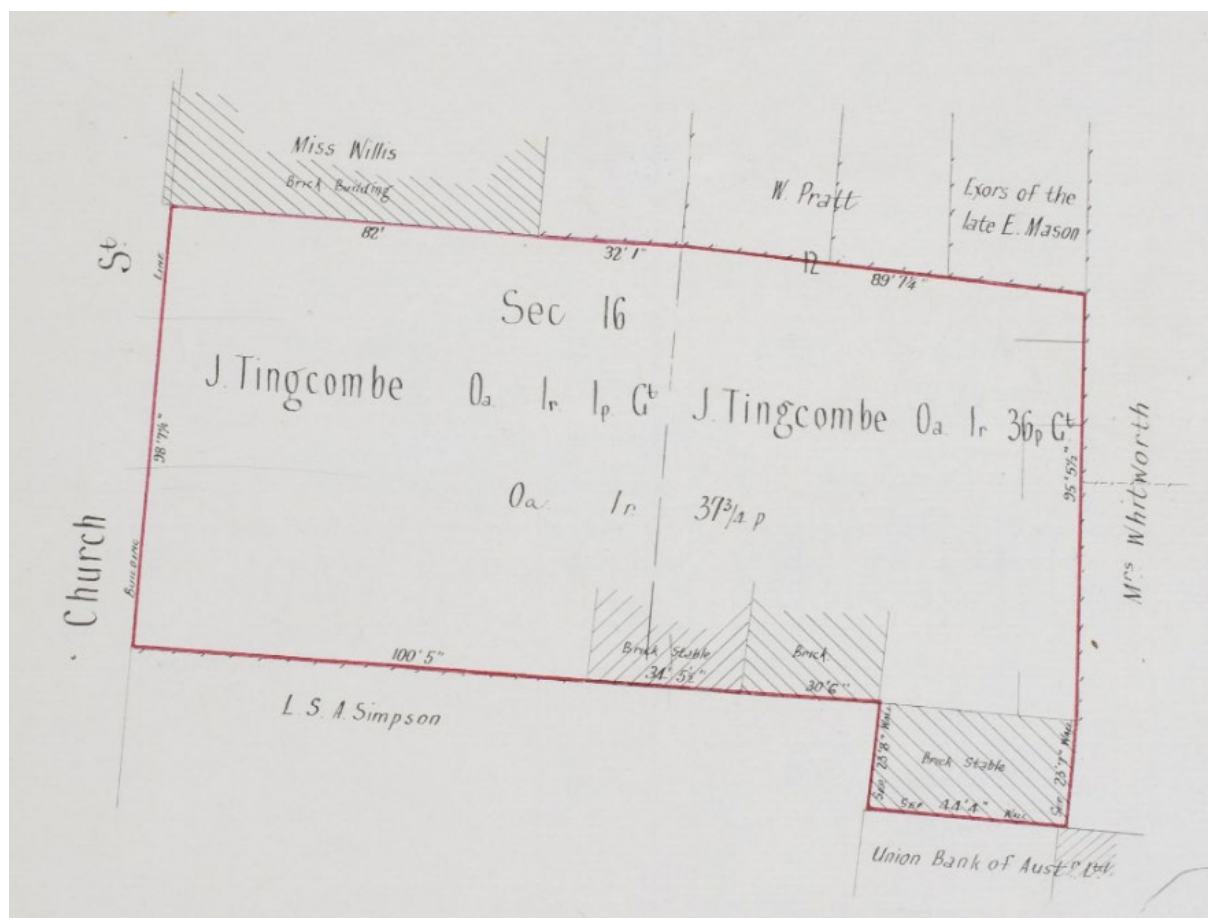 Miss Willis
Brick Building
W. Pratt
Exors of the
late E. Mason
82'
32' 1"
12
89' 7¼"
Church St.
Building Line
98' 7¼"
Sec 16
J. Tingcombe 0a 1r 1p Gt
J. Tingcombe 0a 1r 36p Gt
0a 1r 37¾ p
95' 5½"
Mrs Whitworth
Brick Stable
34' 5½"
Brick
30' 6"
100' 5"
L. S. A. Simpson
23' 8" Wall
Brick Stable
44' 4" Wall
23' 7" Wall
Union Bank of Aust